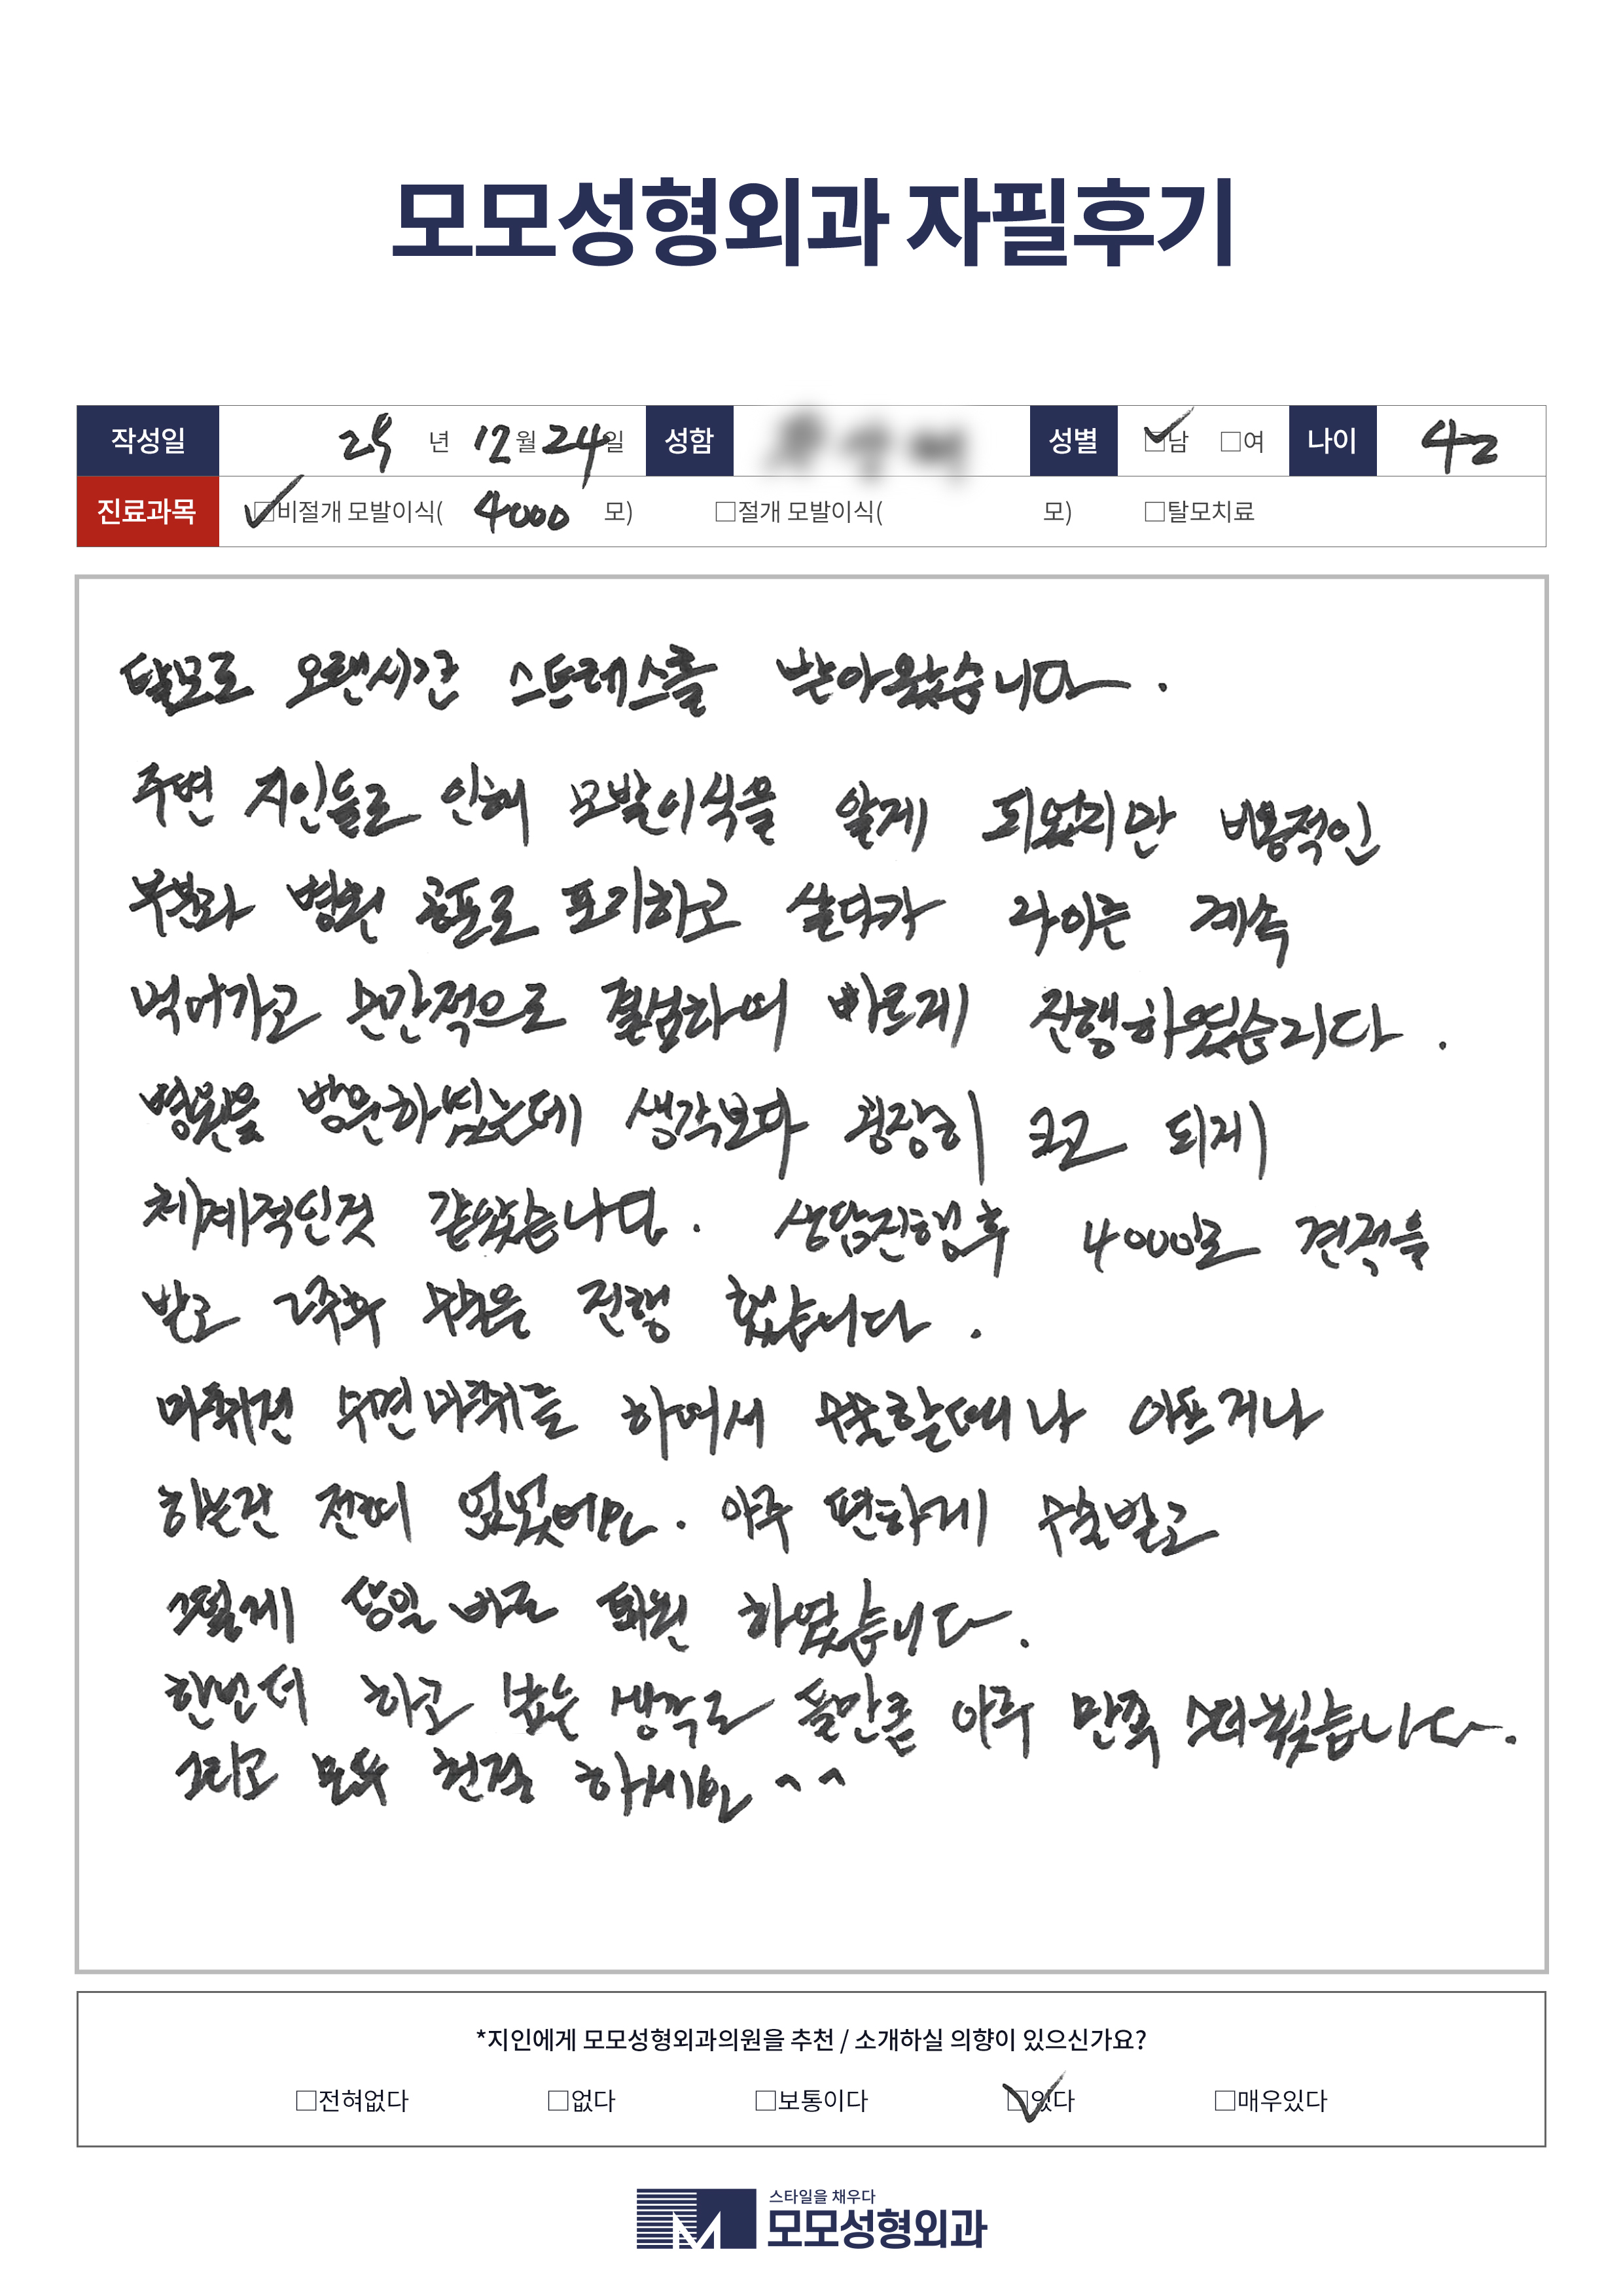 모모성형외과 자필후기
작성일 25 년 12 월 24 일 성함 성별 ☑남 □여 나이 42
진료과목 ☑비절개 모발이식( 4000 모) □절개 모발이식( 모) □탈모치료
탈모로 오랜시간 스트레스를 받아왔습니다.
주변 지인들로 인해 모발이식을 알게 되었지만 비용적인
부분과 병원 공포로 포기하고 살다가 나이는 계속
먹어가고 순간적으로 결심하여 빠르게 진행하였습니다.
병원을 방문하였는데 생각보다 굉장히 크고 되게
체계적인것 같았습니다. 상담진행후 4000모로 견적을
받고 2주후 수술을 진행 했습니다.
마취전 수면마취를 하여서 수술할때나 아프거나
하는건 전혀 없었어요. 아주 편하게 수술받고
그렇게 당일 바로 퇴원 하였습니다.
한번더 하고 싶은 생각도 들만큼 아주 만족 스러웠습니다.
그리고 모두 친절 하세요 ^^
*지인에게 모모성형외과의원을 추천 / 소개하실 의향이 있으신가요?
□전혀없다 □없다 □보통이다 ☑있다 □매우있다
스타일을 채우다
모모성형외과